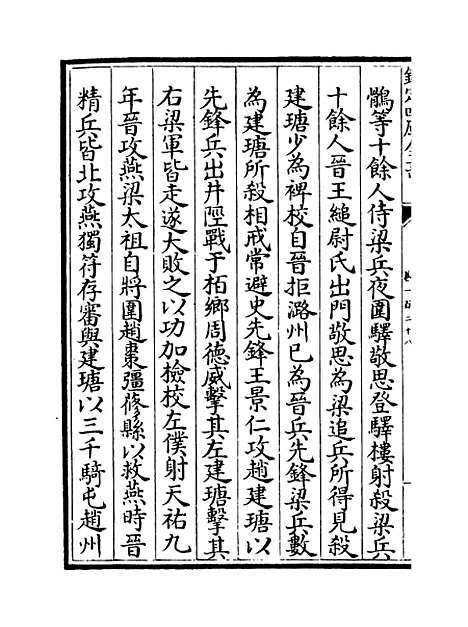 鶻等十餘人侍梁兵夜圍驛敬思登驛樓射殺梁兵
十餘人晉王縋尉氏出門敬思為梁追兵所得見殺
建瑭少為裨校自晉拒潞州已為晉兵先鋒梁兵數
為建瑭所殺相戒常避史先鋒王景仁攻趙建瑭以
先鋒兵出井陘戰于柏鄉周德威擊其左建瑭擊其
右梁軍皆走遂大敗之以功加檢校左僕射天祐九
年晉攻燕梁太祖自將圍趙棗彊蓨縣以救燕時晉
精兵皆北攻燕獨符存審與建瑭以三千騎屯趙州